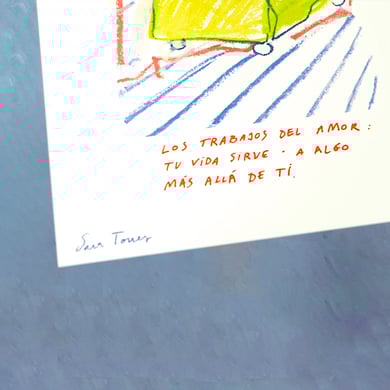 LOS TRABAJOS DEL AMOR:
TU VIDA SIRVE · A ALGO
MÁS ALLÁ DE TÍ.
Sara Torres